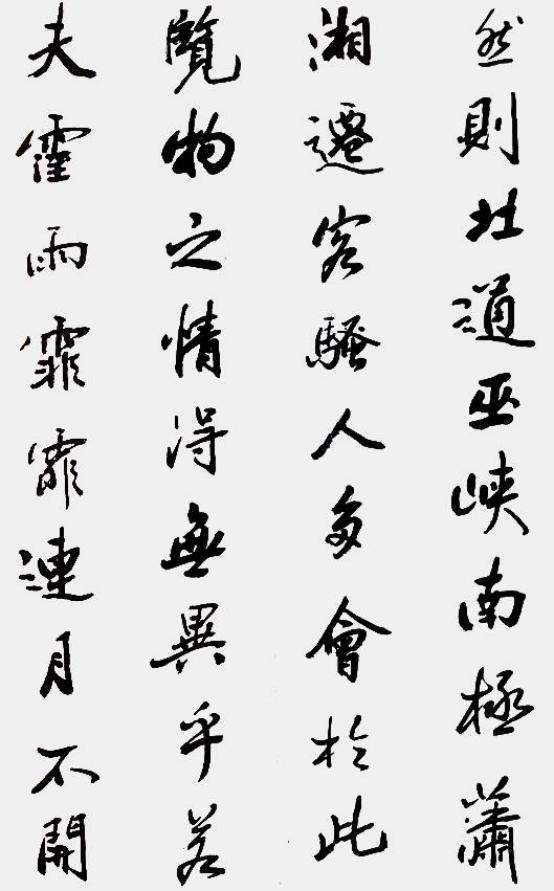 然則北通巫峽南極瀟
湘遷客騷人多會於此
覽物之情得無異乎若
夫霪雨霏霏連月不開